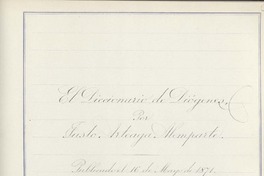 El Diccionario de Diógenes.
Por
Justo Arteaga Alemparte.
Publicado el 16 de Mayo de 1871.